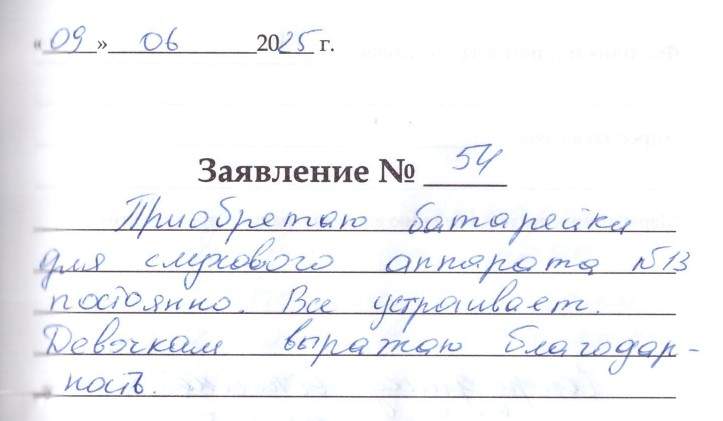 «09» 06 2025 г.
Заявление № 54
Приобретаю батарейки
для слухового аппарата №13
постоянно. Все устраивает.
Девочкам выражаю благодар-
ность.